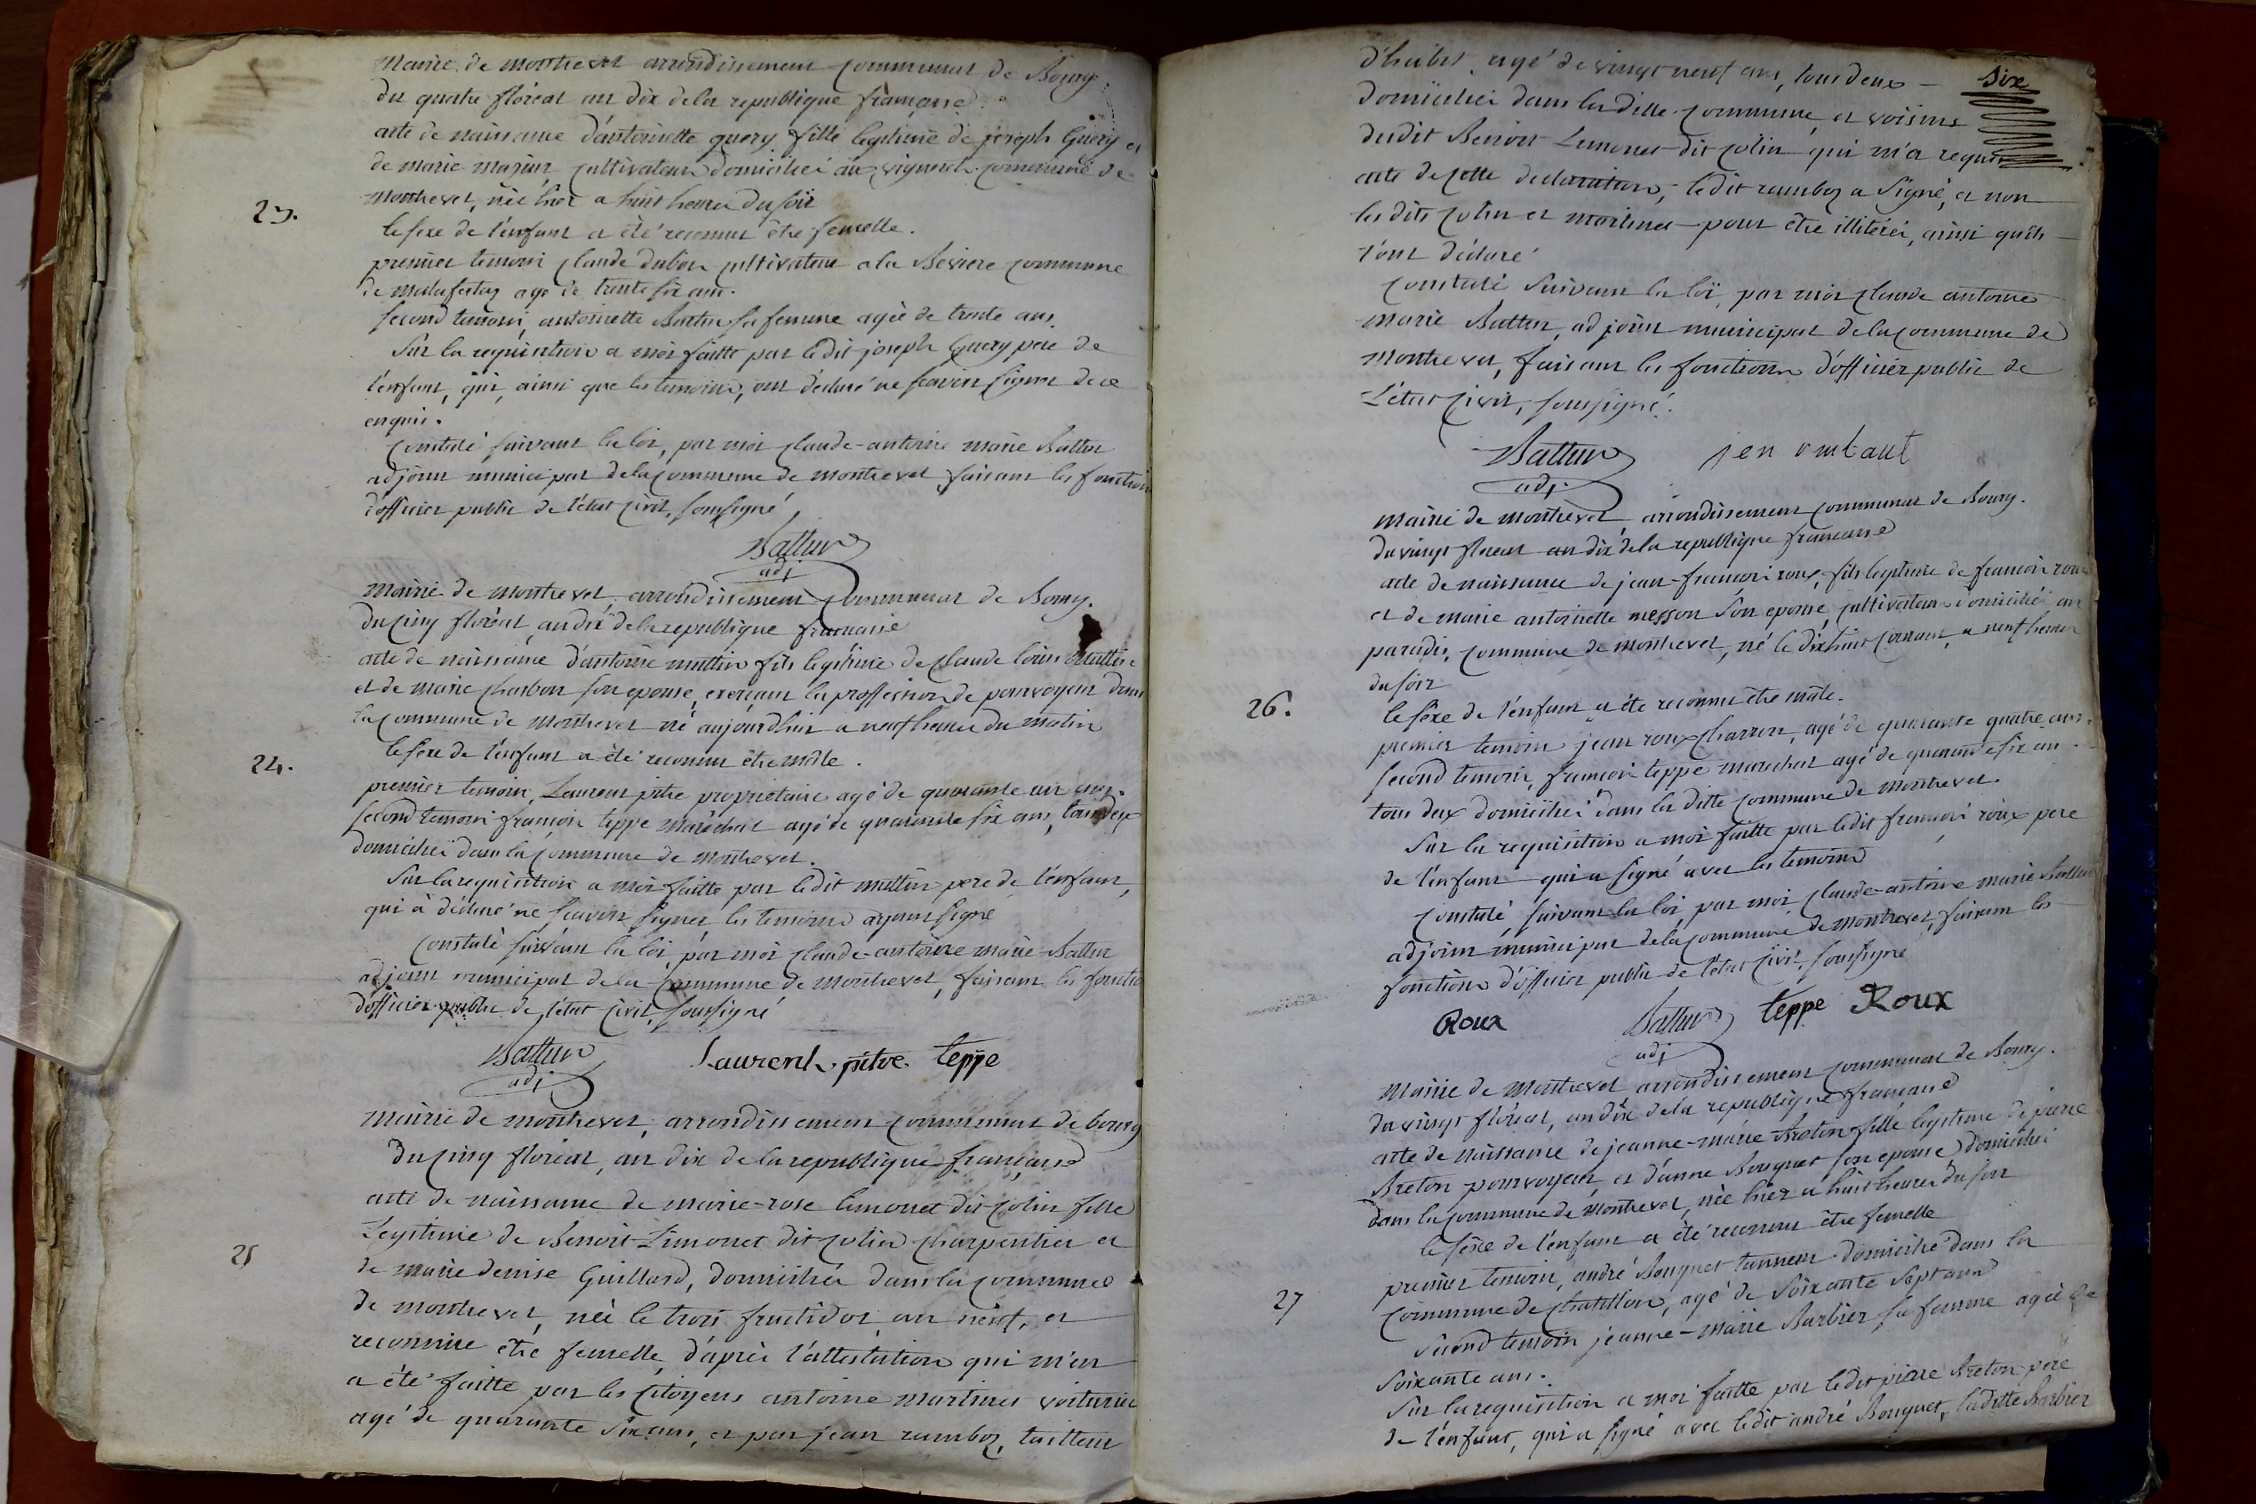 Mairie de montrevel arrondissement communal de Bourg
du quatre floréal an dix de la republique française
acte de naissance d'antoinette guery fille legitime de joseph Guery et
de marie majeur cultivateurs domiciliés au commune de
montrevel, née hier a huit heures du soir
23.
le sexe de l'enfant a été reconnu être femelle.
premier temoin claude dubois cultivateur a la Besiere commune
de malafretaz agé de trente six ans.
second temoin, antoinette Buttin sa femme agée de trente ans
Sur la requisition a moi faitte par le dit joseph Guery pere de
l'enfant, qui, ainsi que les temoins, ont déclaré ne scavoir signer de ce
enquis.
Constaté suivant la loi, par moi claude-antoine marie Battur
adjoint municipal de la commune de montrevel faisant les fonctions
d'officier public de l'état civil, soussigné
Battur
adj
Mairie de montrevel, arrondissement communal de Bourg.
du cinq floréal, an dix de la republique française
acte de naissance d'antoine muttin fils legitime de claude louis muttin
et de marie charbon son epouse, exerçant la proffession de pourvoyeur dans
la commune de montrevel né aujourdhui a neuf heures du matin
24.
le sexe de l'enfant a été reconnu être mâle.
premier temoin, Laurent pitre proprietaire agé de quarante un ans.
second temoin françois teppe maréchal agé de quarante six ans, tous deux
domiciliés dans la commune de montrevel.
Sur la requisition a moi faitte par ledit muttin pere de l'enfant,
qui à déclaré ne scavoir signer, les temoins ayant signé
Constaté suivant la loi, par moi claude-antoine marie Battur
adjoint municipal de la commune de montrevel, faisant les fonctions
d'officier public de l'état civil, soussigné
Battur
adj
Laurent pitre teppe
Mairie de montrevel, arrondissement communal de bourg
Du cinq floréal, an dix de la republique française
acte de naissance de marie-rose Limonet dit Colin fille
Legitime de Benoit Limonet dit colin charpentier et
25
de marie denise Guillard, domiciliés dans la commune
de montrevel, née le trois fructidor an neuf, et
reconnue être femelle, d'après l'attestation qui m'en
a été faitte par les citoyens antoine martinet voiturier
agé de quarante six ans, et par jean ramboz, tailleur
d'habit, agé de vingt neuf ans, tous deux
Six
domiciliés dans la ditte commune et voisins
dudit Benoit Limonet dit colin qui m'a requis
acte de cette declaration, le dit ramboz a signé, et non
les dits colin et martinet pour être illitérés, ainsi qu'ils
l'ont déclaré
Constaté suivant la loi, par moi claude antoine
marie Battur, adjoint municipal de la commune de
montrevel, faisant les fonctions d'officier public de
L'état civil, soussigné.
Battur
adj.
Mairie de montrevel, arrondissement communal de Bourg.
du vingt floreal an dix de la republique française
acte de naissance de jean-françois roux, fils legitime de françois roux
et de marie antoinette messon son epouse, cultivateurs domiciliés au
paradis, commune de montrevel, né le dix huit courant, a neuf heures
du soir
26.
le sexe de l'enfant a été reconnu être mâle.
premier temoin jean roux charron, agé de quarante quatre ans.
second temoin, françois teppe marechal agé de quarante six ans.
tous deux domiciliés dans la ditte commune de montrevel.
Sur la requisition a moi faitte par ledit françois roux pere
de l'enfant qui a signé avec les temoins
Constaté suivant la loi, par moi claude-antoine marie Battur
adjoint municipal de la commune de montrevel, faisant les
fonctions d'officier public de l'état civil, soussigné
Roux Battur teppe Roux
adj
Mairie de montrevel arrondissement communal de Bourg.
du vingt floréal, an dix de la republique française
acte de naissance de jeanne-marie Breton fille legitime de pierre
Breton pourvoyeur, et d'anne Bouquet son epouse, domiciliés
dans la commune de montrevel, née hier a huit heures du soir
le sexe de l'enfant a été reconnu être femelle
premier temoin, andré Bouquet tanneur domicilié dans la
27
commune de chatillon, agé de soixante sept ans
Second temoin jeanne-marie Barbier sa femme agée de
soixante ans.
Sur la requisition a moi faitte par ledit pierre Breton pere
de l'enfant, qui a signé avec ledit andré Bouquet, laditte Barbier